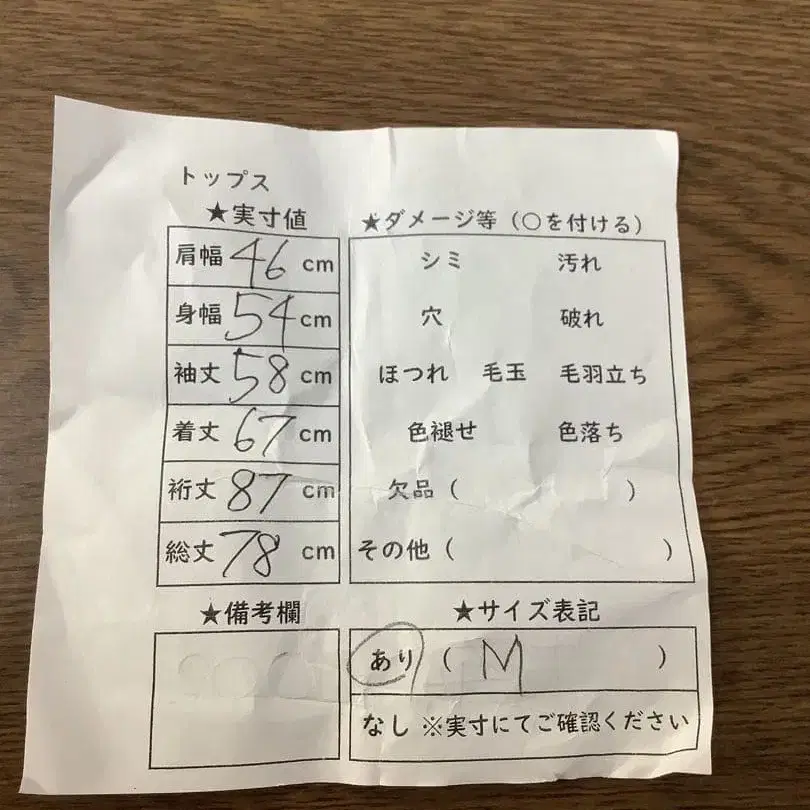 トップス
★実寸値
肩幅 46 cm
身幅 54 cm
袖丈 58 cm
着丈 67 cm
裄丈 87 cm
総丈 78 cm
★ダメージ等（○を付ける）
シミ 汚れ
穴 破れ
ほつれ 毛玉 毛羽立ち
色褪せ 色落ち
欠品（ ）
その他（ ）
★備考欄
★サイズ表記
あり（ M ）
なし ※実寸にてご確認ください